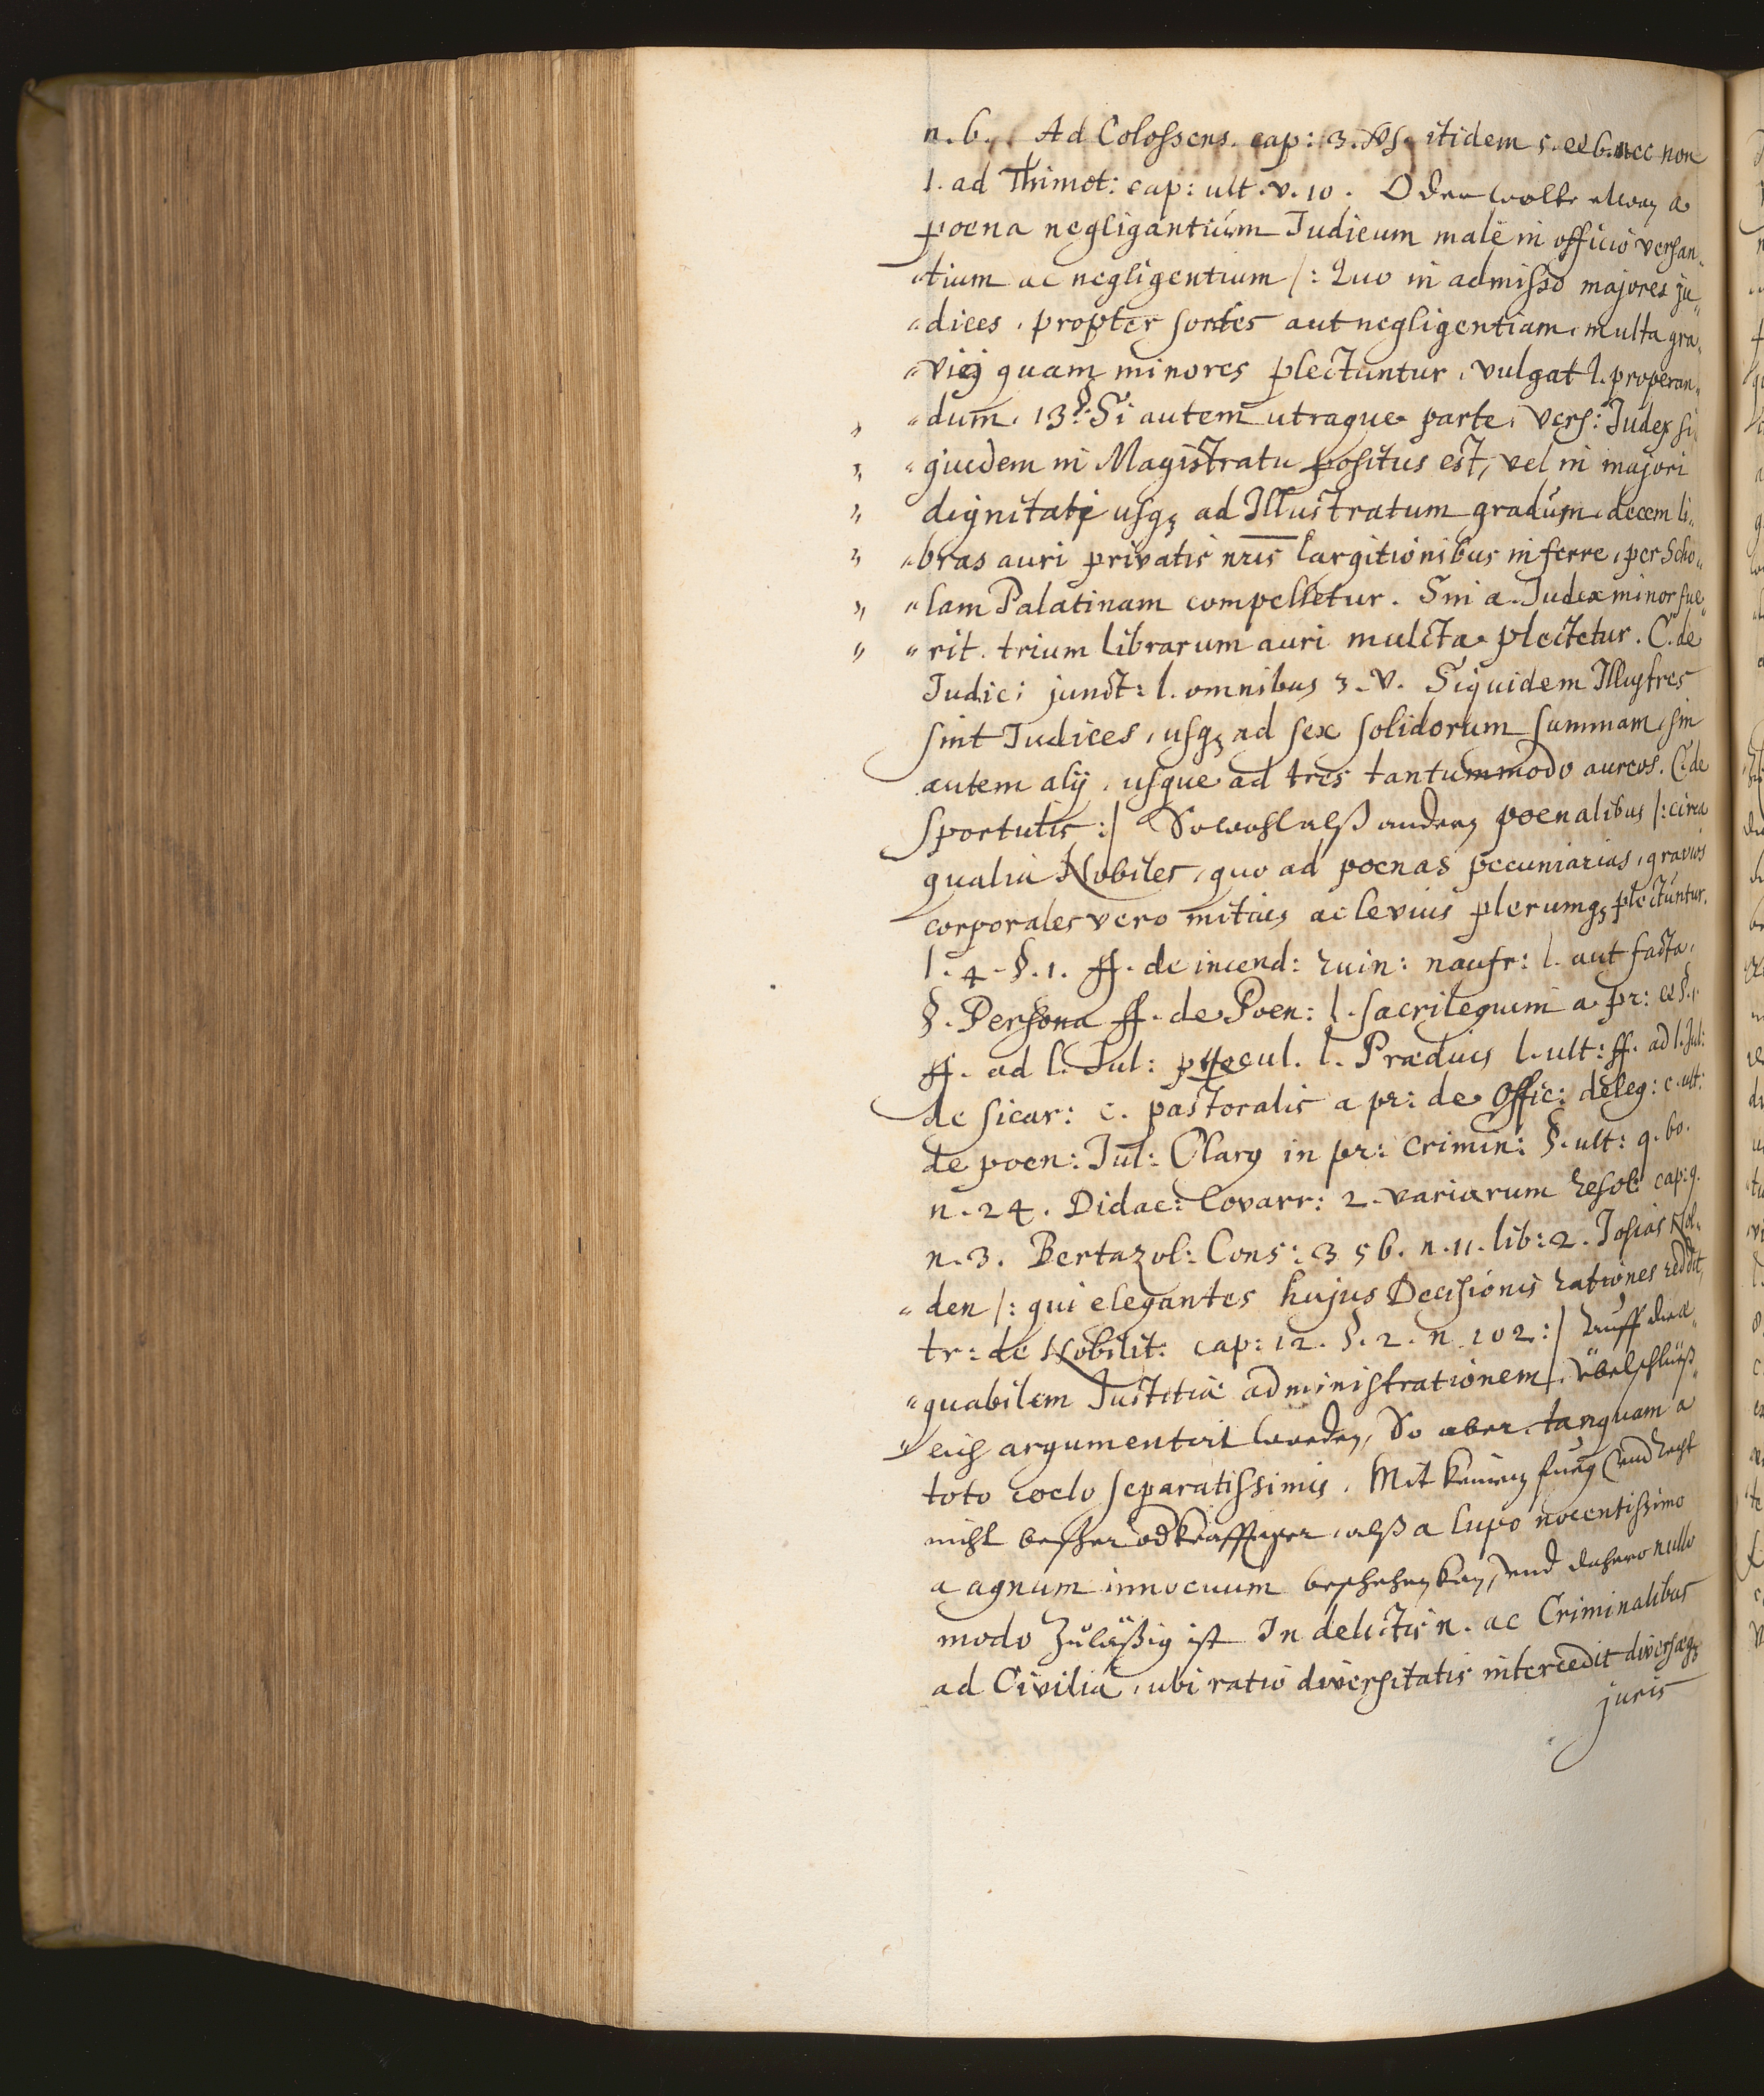 n. 6. Ad Colossens. cap: 3. Vs. itidem 5. et 6. nec non
1. ad Thimot: cap: ult. v. 10. Oder wolte etwan a
poena negligantium Judicum male in officio versan„
„tium ac negligentium |: Quo in admisso majores ju„
„dices, propter sordes aut negligentiam, multa gra„
„viq quam minores plectuntur, vulgat l. properan„
„dum. 13. §. Si autem utraque parte, vers: Judex si
„quidem in Magistratu positus est, vel in majori
dignitate usq; ad Illustratum gradum, decem li„
„bras auri privatis nris largitionibus inferre, per Scho„
„lam Palatinam compelletur. Sin a. Judex minor fue„
„rit, trium librarum auri mulcta plectetur. C. de
Judic: junct: l. omnibus 3. V. Siquidem Illustres
sint Judices, usq; ad sex solidorum summam, sin
autem alij, usque ad tres tantummodo aureos. C. de
sportulis :| Sowohl alß andern poenalibus |: circa
qualia Nobiles, quo ad poenas pecuniarias, gravius
corporales vero mitius ac levius plerumq; plectuntur.
l. 4. §. 1. ff. de incend: ruin: naufr: l. aut facta.
§. Persona ff. de Poen: l. sacrilegum a pr: et §. 1.
ff. ad l. Jul: pecul. l. Præduis l. ult: ff. ad l. Jul:
de sicar: c. pastoralis a pr: de Offic: deleg: c. ult:
de poen: Jul: Clary in pr: crimin: §. ult: q. 60.
n. 24. Didac: Covarr: 2. variarum resol: cap: 9.
n. 3. Bertazol: Cons: 356. n. 11. lib: 2. Josias Nol„
„den |: qui elegantes hujus Decisionis rationes reddit,
tr: de Nobilit: cap: 12. §. 2. n. 102 :| auff die æ„
„quabilem Justitiæ administrationem, übelschlüß„
„lich argumentirt werden, So aber, tanquam a
toto coelo separatissimis, Mit keinem fueg vnd recht
nicht besser od kräfftiger, alß a lupo nocentissimo
a agnum innocuum beschehen kan, vnd dahero nullo
modo zuläßig ist In delictis n. ac Criminalibus
ad Civilia, ubi ratio diversitatis intercedit diversaq;
juris